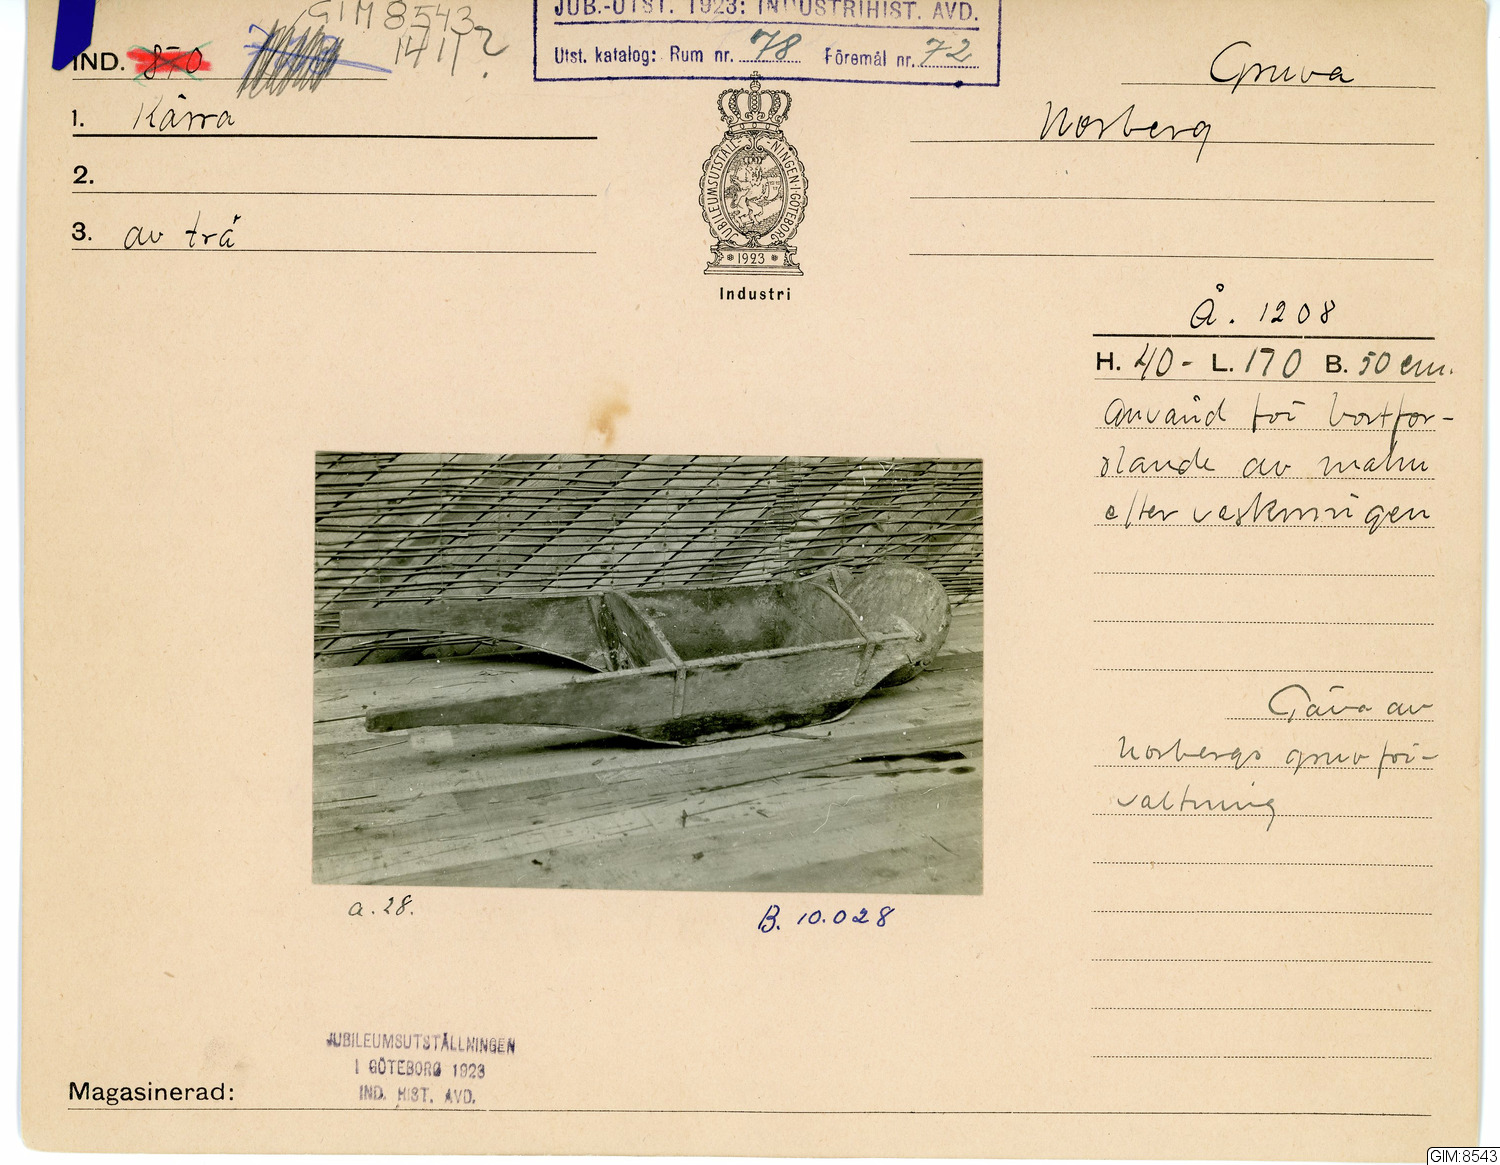 GIM 8543
1411?
JUB.-UTST. 1923: INDUSTRIHIST. AVD.
Utst. katalog: Rum nr. 78 Föremål nr. 72
IND. 870
Gruva
1. Kärra
Norberg
2.
3. av trä
JUBILEUMSUTSTÄLLNINGEN I GÖTEBORG
1923
Industri
Å. 1208
H. 40 - L. 170 B. 50 cm.
Använd för bortfor-
slande av malm
efter vaskningen
Gåva av
Norbergs gruvför-
valtning
a. 28.
B. 10.028
JUBILEUMSUTSTÄLLNINGEN
I GÖTEBORG 1923
IND. HIST. AVD.
Magasinerad:
GIM:8543